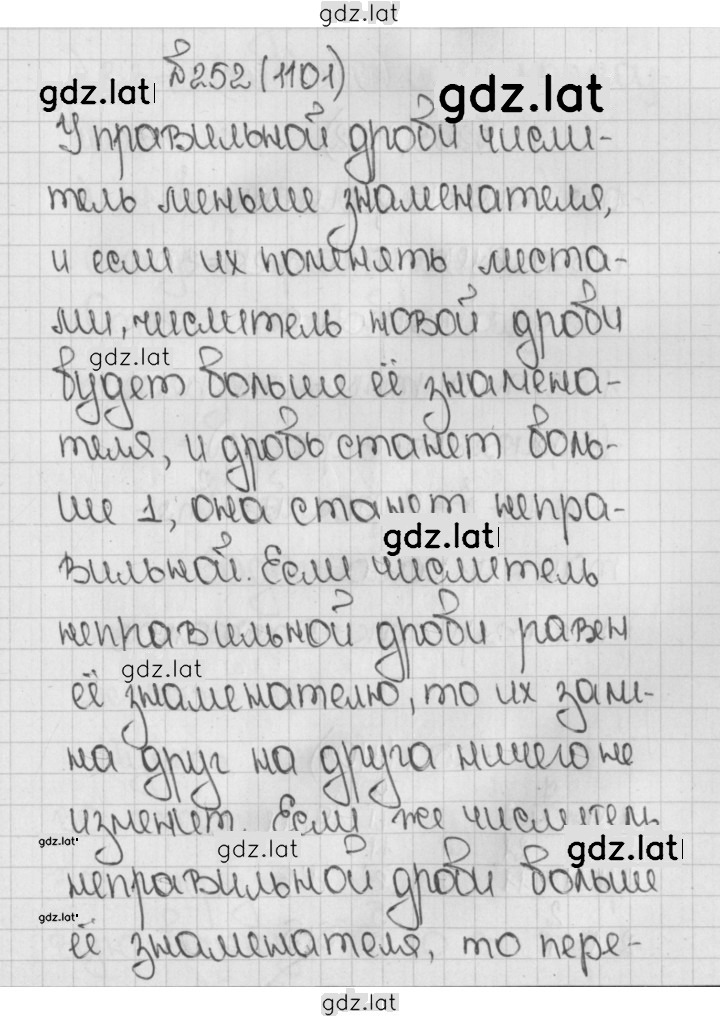 gdz.lat
№252(1101)
gdz.lat
gdz.lat
У правильной дроби числи-
тель меньше знаменателя,
и если их поменять места-
ми, числитель новой дроби
gdz.lat
будет больше её знамена-
теля, и дробь станет боль-
ше 1, она станет непра-
gdz.lat
вильной. Если числитель
неправильной дроби равен
gdz.lat
её знаменателю, то их заме-
на друг на друга ничего не
изменит. Если же числитель
gdz.lat
gdz.lat
gdz.lat
неправильной дроби больше
gdz.lat
её знаменателя, то пере-
gdz.lat